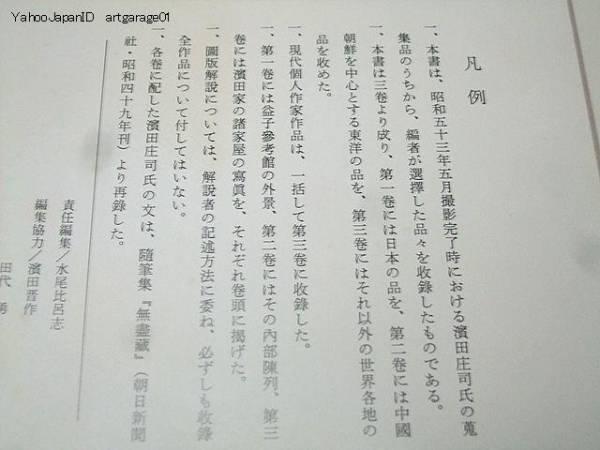 YahooJapanID　artgarage01
凡例
一、本書は、昭和五十三年五月撮影完了時における濱田庄司氏の蒐
集品のうちから、編者が選擇した品々を收錄したものである。
一、本書は三卷より成り、第一卷には日本の品を、第二卷には中國
朝鮮を中心とする東洋の品を、第三卷にはそれ以外の世界各地の
品を收めた。
一、現代個人作家作品は、一括して第三卷に收錄した。
一、第一卷には益子參考館の外景、第二卷にはその內部陳列、第三
卷には濱田家の諸家屋の寫眞を、それぞれ卷頭に揭げた。
一、圖版解說については、解說者の記述方法に委ね、必ずしも收錄
全作品について付してはいない。
一、各卷に配した濱田庄司氏の文は、隨筆集『無盡藏』（朝日新聞
社・昭和四十九年刊）より再錄した。
責任編集／水尾比呂志
編集協力／濱田晋作
田代　勇